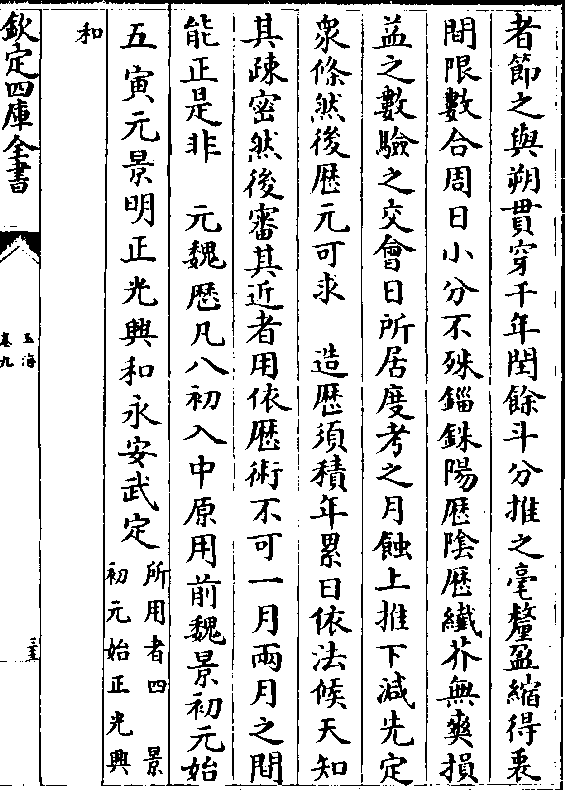 者節之與朔貫穿千年閏餘斗分推之毫釐盈縮得衷
間限數合周日小分不殊錙銖陽厯隂厯纖芥無爽損
益之數驗之交會日所居度考之月蝕上推下減先定
衆條然後厯元可求　造厯須積年累日依法候天知
其疎密然後審其近者用依厯術不可一月兩月之間
能正是非　元魏厯凡八初入中原用前魏景初元始
五寅元景明正光興和永安武定所用者四　景
初元始正光興
和
欽定四庫全書
玉海
卷九